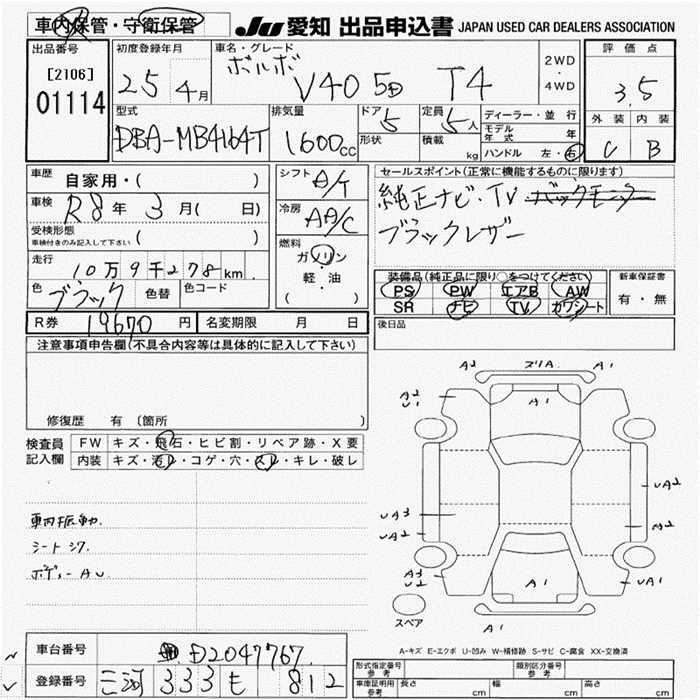 車内保管・守衛保管 JU 愛知 出品申込書 JAPAN USED CAR DEALERS ASSOCIATION
出品番号 初度登録年月 車名・グレード 2WD ・ 4WD 評価点
[2106] 01114 25年 4月 ボルボ V40 5D T4 3.5
型式 排気量 ドア 5 定員 5人 ディーラー・並行 外装 内装
DBA-MB4164T 1600cc 形状 積載 kg モデル年式 年 C B
ハンドル 左・右
車歴 自家用・( ) シフト A/T セールスポイント(正常に機能するものに限ります)
車検 R8年 3月( 日) 冷房 AA/C 純正ナビ・TV バックモニター
受検形態 車検付きのみ記入して下さい ( ) ブラックレザー
走行 10万9千278km 燃料 ガソリン・軽・油 ( )
装備品(純正品に限り○をつけてください) 新車保証書
色 ブラック 色替 色コード PS PW エアB AW 有・無
SR ナビ TV カワシート
R券 19670円 名変期限 月 日 後日品
注意事項申告欄(不具合内容等は具体的に記入して下さい)
A2 ズリA A1
A1
A2 U1
修復歴 有 〔箇所 〕
検査員記入欄 FW キズ・飛石・ヒビ割・リペア跡・X要
内装 キズ・汚レ・コゲ・穴・スレ・キレ・破レ
UA2
UA3
UA2
M2
車内振動
シート シワ
ボディーAU
A3 U2
A1
UA1
スペア
A1
A-キズ E-エクボ U-凹み W-補修跡 S-サビ C-腐食 XX-交換済
車台番号 D2047767
登録番号 三河 333 モ 812
形式指定番号 参考 類別区分番号 参考
車庫証明用 参考 長さ cm 幅 cm 高さ cm